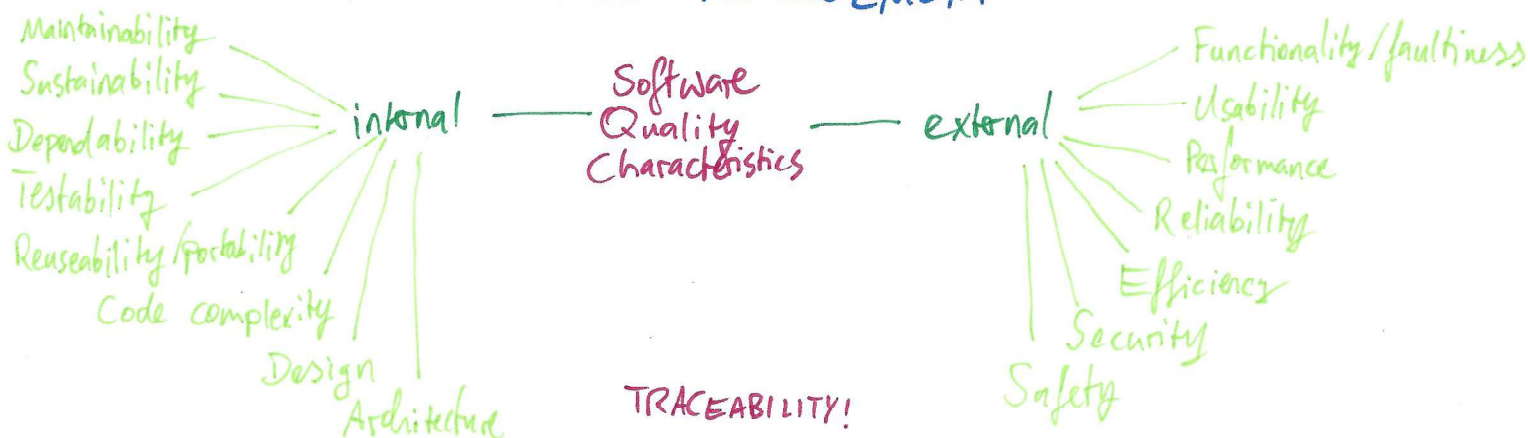 Maintainability
Sustainability
Dependability
Testability
Reuseability/portability
Code complexity
Design
Architecture
internal
Software
Quality
Characteristics
external
Functionality/faultiness
Usability
Performance
Reliability
Efficiency
Security
Safety
TRACEABILITY!